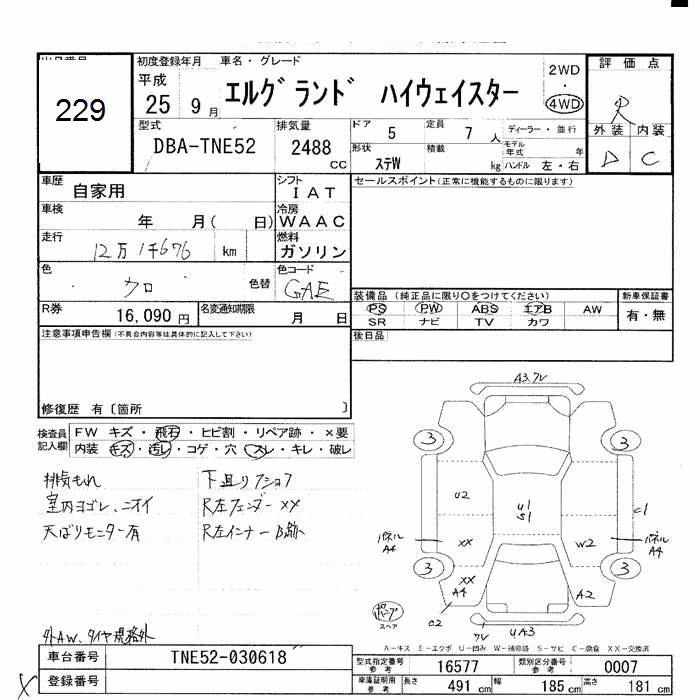 229
初度登録年月
車名・グレード
平成
25 9月
エルグランド ハイウェイスター
2WD
・
4WD
評価点
R
外装 内装
D C
型式
DBA-TNE52
排気量
2488
CC
ドア 5
定員 7人
ディーラー・並行
形状 ステW
積載 kg
モデル年式 年
ハンドル 左・右
車歴 自家用
シフト IAT
セールスポイント(正常に機能するものに限ります)
車検 年 月( 日)
冷房 WAAC
走行 12万1千676 km
燃料 ガソリン
色 クロ 色替
色コード GAE
R券 16,090円
名変通知期限 月 日
装備品 (純正品に限り○をつけてください)
PS PW ABS エアB AW
SR ナビ TV カワ
新車保証書
有・無
注意事項申告欄(不具合内容等は具体的に記入して下さい)
後日品
修復歴 有〔箇所 〕
検査員記入欄
FW キズ・飛石・ヒビ割・リペア跡・×要
内装 キズ・汚レ・コゲ・穴・スレ・キレ・破レ
排気もれ
室内ヨゴレ、ニオイ
天ばりモニター有
R左フェンダーXX
R左インナーB跡
外AW、タイヤ規格外
車台番号 TNE52-030618
登録番号
A3.フレ
3
3
U2
U1
S1
C1
パネル
A4
XX
W2
パネル
A4
3
3
XX
A4
A2
C2
フレ
UA3
スペア
A-キズ E-エクボ U-凹み W-補修跡 S-サビ C-腐食 XX-交換済
型式指定番号 参考 16577
類別区分番号 参考 0007
車庫証明用 参考 長さ 491cm 幅 185cm 高さ 181cm